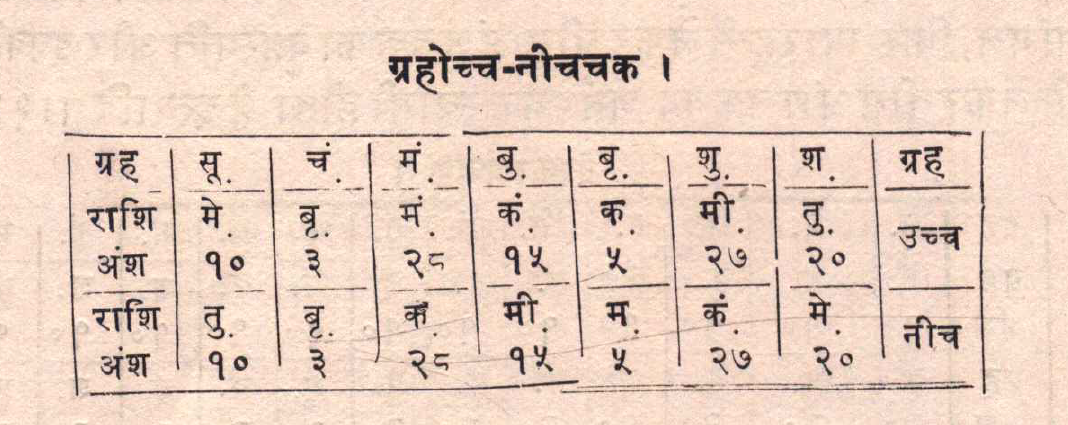 ग्रहोच्च-नीचचक ।
ग्रह सू. चं. मं. बु. बृ. शु. श. ग्रह
राशि मे. बृ. मं. कं. क मी. तु. उच्च
अंश १० ३ २८ १५ ५ २७ २०
राशि तु. बृ. क मी. म. कं. मे. नीच
अंश १० ३ २८ १५ ५ २७ २०